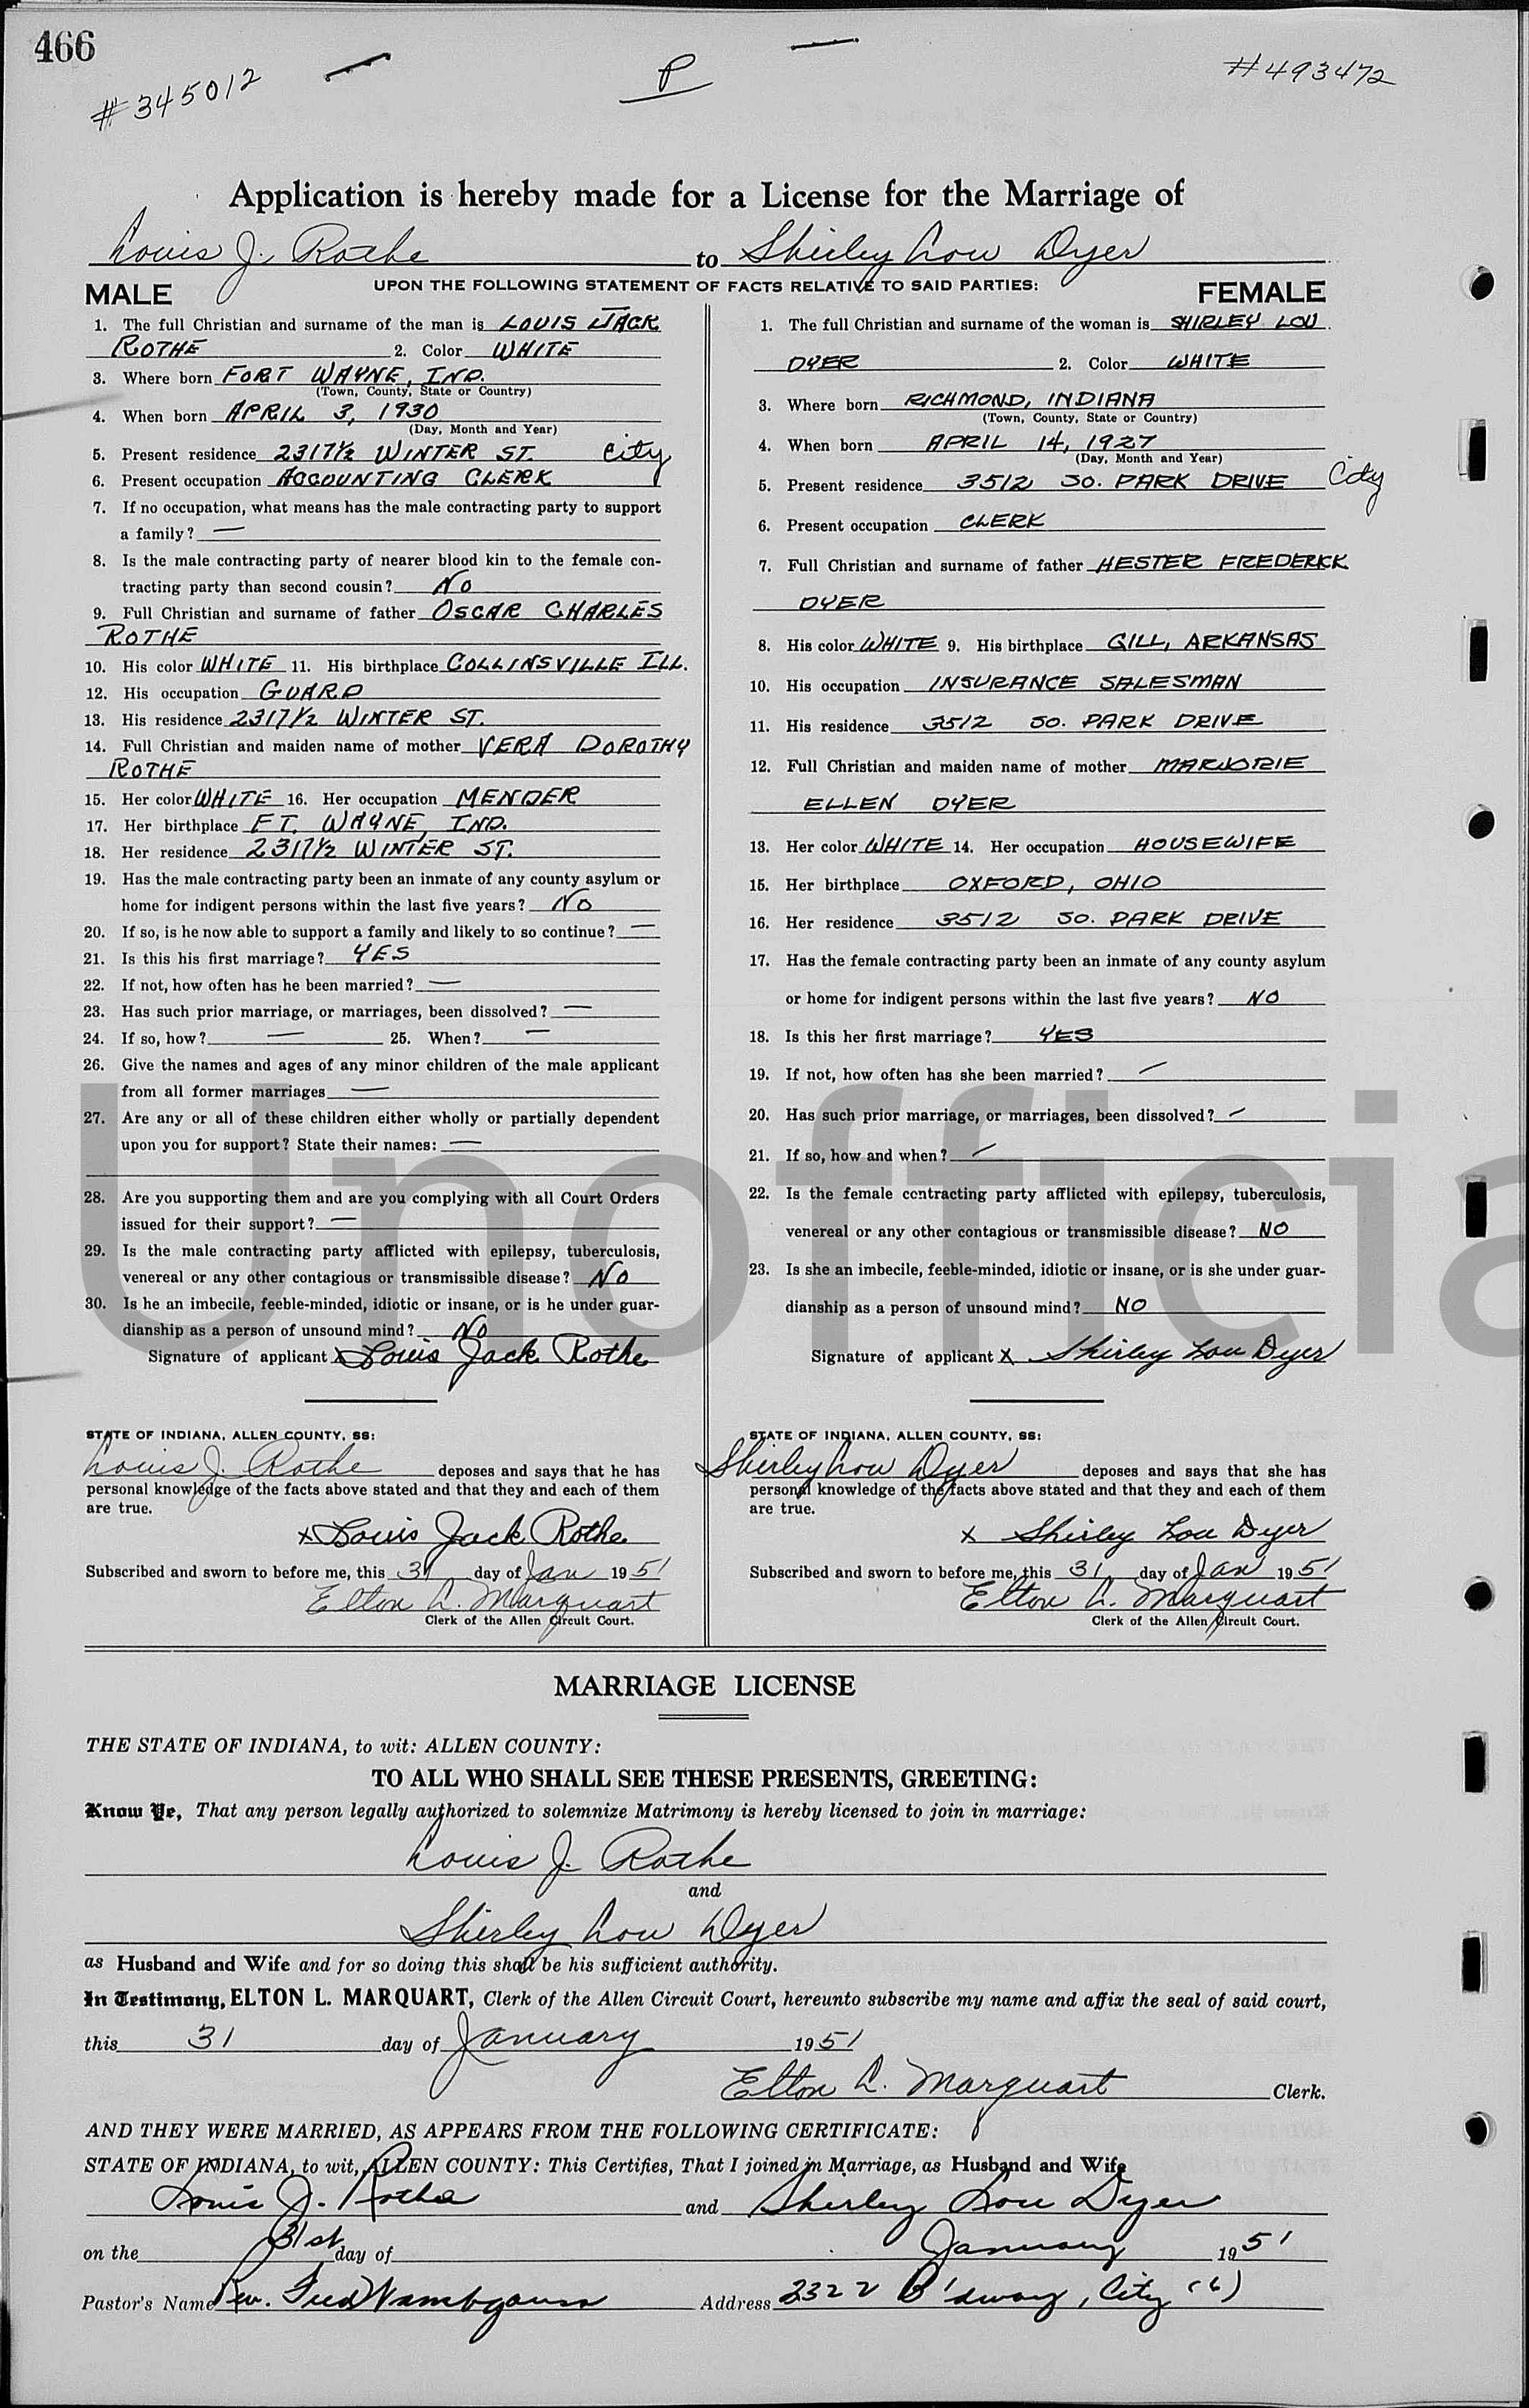 466
#345012
P
#493472
Application is hereby made for a License for the Marriage of
Louis J. Rothe to Shirley Lou Dyer
UPON THE FOLLOWING STATEMENT OF FACTS RELATIVE TO SAID PARTIES:
MALE
1. The full Christian and surname of the man is LOUIS JACK
ROTHE 2. Color WHITE
3. Where born FORT WAYNE, IND.
(Town, County, State or Country)
4. When born APRIL 3, 1930
(Day, Month and Year)
5. Present residence 2317 1/2 WINTER ST. City
6. Present occupation ACCOUNTING CLERK
7. If no occupation, what means has the male contracting party to support
a family? —
8. Is the male contracting party of nearer blood kin to the female con-
tracting party than second cousin? NO
9. Full Christian and surname of father OSCAR CHARLES
ROTHE
10. His color WHITE 11. His birthplace COLLINSVILLE ILL.
12. His occupation GUARD
13. His residence 2317 1/2 WINTER ST.
14. Full Christian and maiden name of mother VERA DOROTHY
ROTHE
15. Her color WHITE 16. Her occupation MENDER
17. Her birthplace FT. WAYNE, IND.
18. Her residence 2317 1/2 WINTER ST.
19. Has the male contracting party been an inmate of any county asylum or
home for indigent persons within the last five years? NO
20. If so, is he now able to support a family and likely to so continue? —
21. Is this his first marriage? YES
22. If not, how often has he been married? —
23. Has such prior marriage, or marriages, been dissolved? —
24. If so, how? — 25. When? —
26. Give the names and ages of any minor children of the male applicant
from all former marriages —
27. Are any or all of these children either wholly or partially dependent
upon you for support? State their names: —
28. Are you supporting them and are you complying with all Court Orders
issued for their support? —
29. Is the male contracting party afflicted with epilepsy, tuberculosis,
venereal or any other contagious or transmissible disease? NO
30. Is he an imbecile, feeble-minded, idiotic or insane, or is he under guar-
dianship as a person of unsound mind? NO
Signature of applicant x Louis Jack Rothe
STATE OF INDIANA, ALLEN COUNTY, SS:
Louis J. Rothe deposes and says that he has
personal knowledge of the facts above stated and that they and each of them
are true.
x Louis Jack Rothe
Subscribed and sworn to before me, this 31 day of Jan 1951
Elton L. Marquart
Clerk of the Allen Circuit Court.
FEMALE
1. The full Christian and surname of the woman is SHIRLEY LOU
DYER 2. Color WHITE
3. Where born RICHMOND, INDIANA
(Town, County, State or Country)
4. When born APRIL 14, 1927
(Day, Month and Year)
5. Present residence 3512 SO. PARK DRIVE City
6. Present occupation CLERK
7. Full Christian and surname of father HESTER FREDERICK
DYER
8. His color WHITE 9. His birthplace GILL, ARKANSAS
10. His occupation INSURANCE SALESMAN
11. His residence 3512 SO. PARK DRIVE
12. Full Christian and maiden name of mother MARJORIE
ELLEN DYER
13. Her color WHITE 14. Her occupation HOUSEWIFE
15. Her birthplace OXFORD, OHIO
16. Her residence 3512 SO. PARK DRIVE
17. Has the female contracting party been an inmate of any county asylum
or home for indigent persons within the last five years? NO
18. Is this her first marriage? YES
19. If not, how often has she been married? —
20. Has such prior marriage, or marriages, been dissolved? —
21. If so, how and when? —
22. Is the female contracting party afflicted with epilepsy, tuberculosis,
venereal or any other contagious or transmissible disease? NO
23. Is she an imbecile, feeble-minded, idiotic or insane, or is she under guar-
dianship as a person of unsound mind? NO
Signature of applicant x Shirley Lou Dyer
STATE OF INDIANA, ALLEN COUNTY, SS:
Shirley Lou Dyer deposes and says that she has
personal knowledge of the facts above stated and that they and each of them
are true.
x Shirley Lou Dyer
Subscribed and sworn to before me, this 31 day of Jan 1951
Elton L. Marquart
Clerk of the Allen Circuit Court.
Unofficia
MARRIAGE LICENSE
THE STATE OF INDIANA, to wit: ALLEN COUNTY:
TO ALL WHO SHALL SEE THESE PRESENTS, GREETING:
Know Ye, That any person legally authorized to solemnize Matrimony is hereby licensed to join in marriage:
Louis J. Rothe
and
Shirley Lou Dyer
as Husband and Wife and for so doing this shall be his sufficient authority.
In Testimony, ELTON L. MARQUART, Clerk of the Allen Circuit Court, hereunto subscribe my name and affix the seal of said court,
this 31 day of January 1951
Elton L. Marquart Clerk.
AND THEY WERE MARRIED, AS APPEARS FROM THE FOLLOWING CERTIFICATE:
STATE OF INDIANA, to wit, ALLEN COUNTY: This Certifies, That I joined in Marriage, as Husband and Wife
Louis J. Rothe and Shirley Lou Dyer
on the 31st day of January 1951
Pastor's Name Rev. Fred Wambsganss Address 2322 B'dway, City (6)